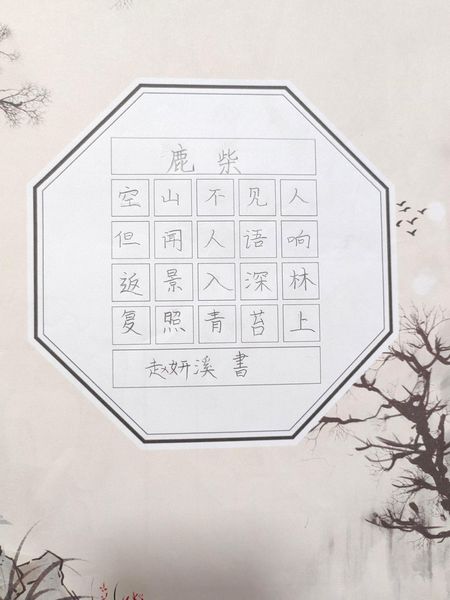 鹿柴
空山不见人
但闻人语响
返景入深林
复照青苔上
赵妍溪 書